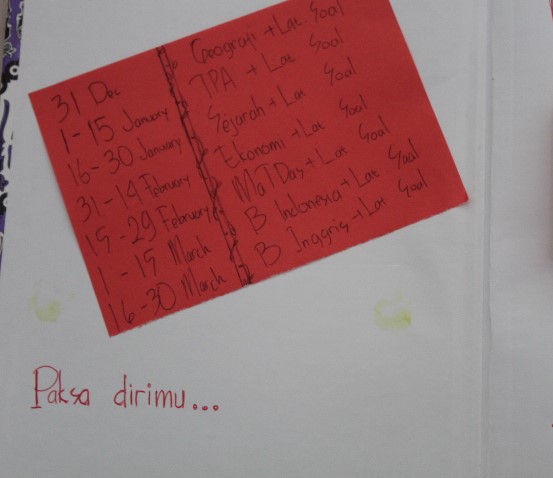 31 Dec Geografi + Lat Soal
1-15 January TPA + Lat Soal
16-30 January Sejarah + Lat Soal
31-14 February Ekonomi + Lat Soal
15-29 February MaTDas + Lat Soal
1-15 March B Indonesia + Lat Soal
16-30 March B Inggris + Lat Soal
Paksa dirimu...